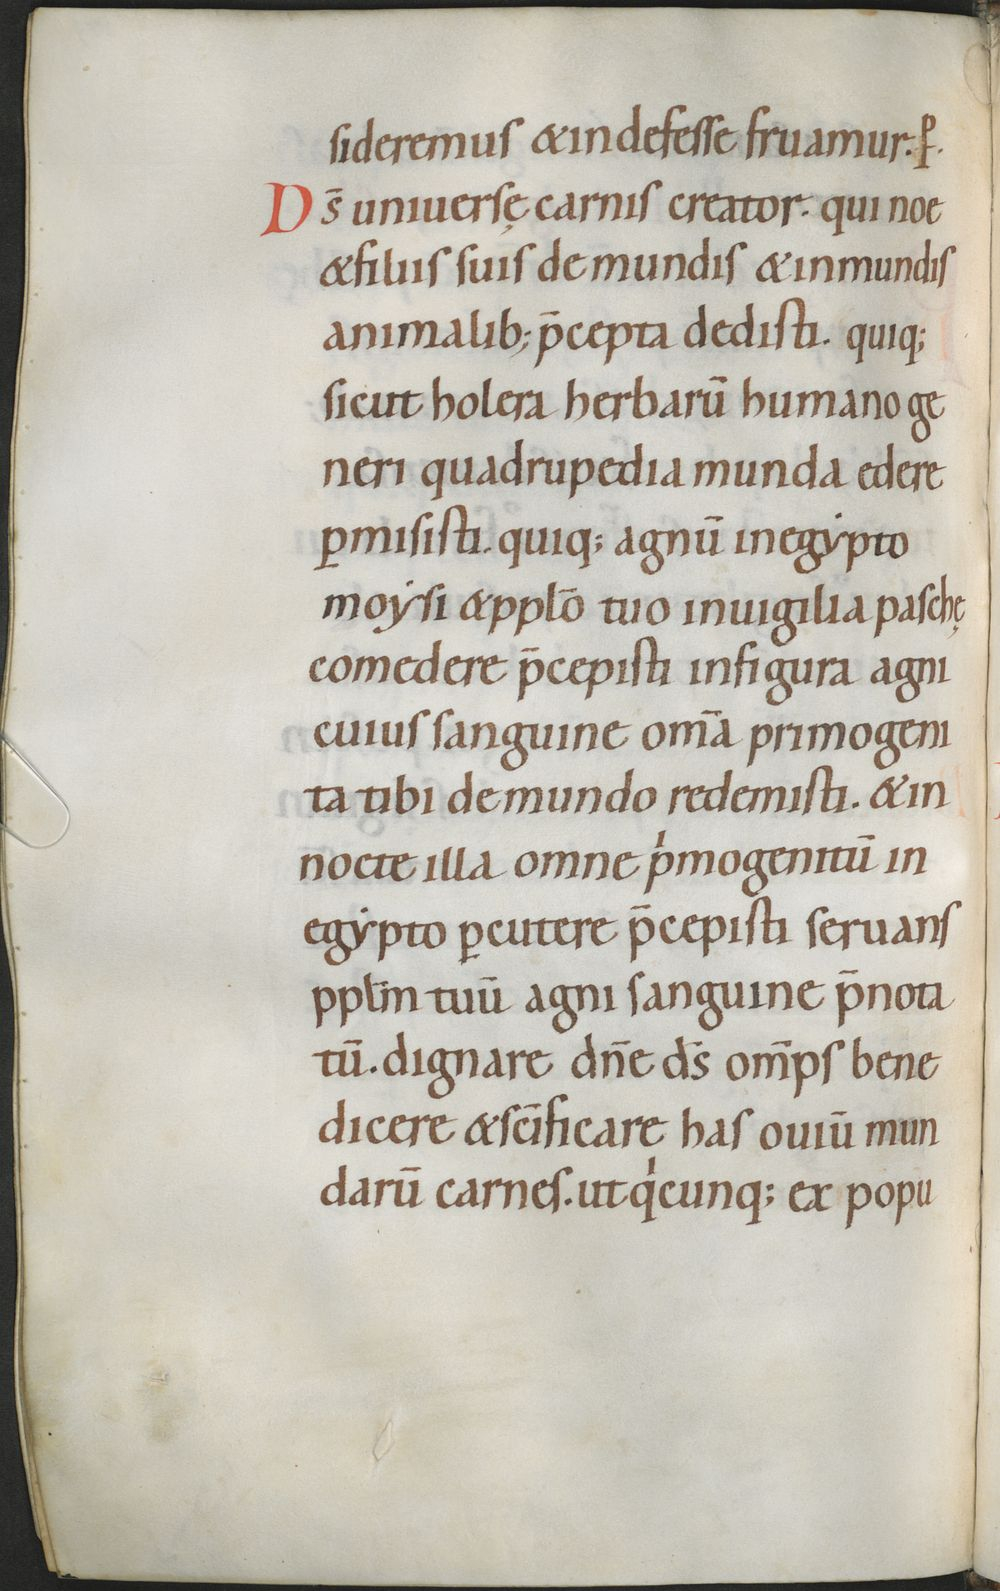 sideremus & indefesse fruamur. p̱.
Ds̄ uniuersę carnis creator. qui noe
& filiis suis de mundis & inmundis
animalib; p̄cepta dedisti. quiq;
sicut holera herbarū humano ge
neri quadrupedia munda edere
ꝑmisisti. quiq; agnū in egẏpto
moẏsi & pplō tuo in uigilia paschę
comedere p̄cepisti in figura agni
cuius sanguine om̄a primogeni
ta tibi de mundo redemisti. & in
nocte illa omne pͥmogenitū in
egẏpto ꝑcutere p̄cepisti seruans
pplm̄ tuū agni sanguine p̄nota
tū. dignare dn̄e ds̄ om̄ps bene
dicere & sc̄ificare has ouiū mun
darū carnes. ut qͥcunq; ex popu